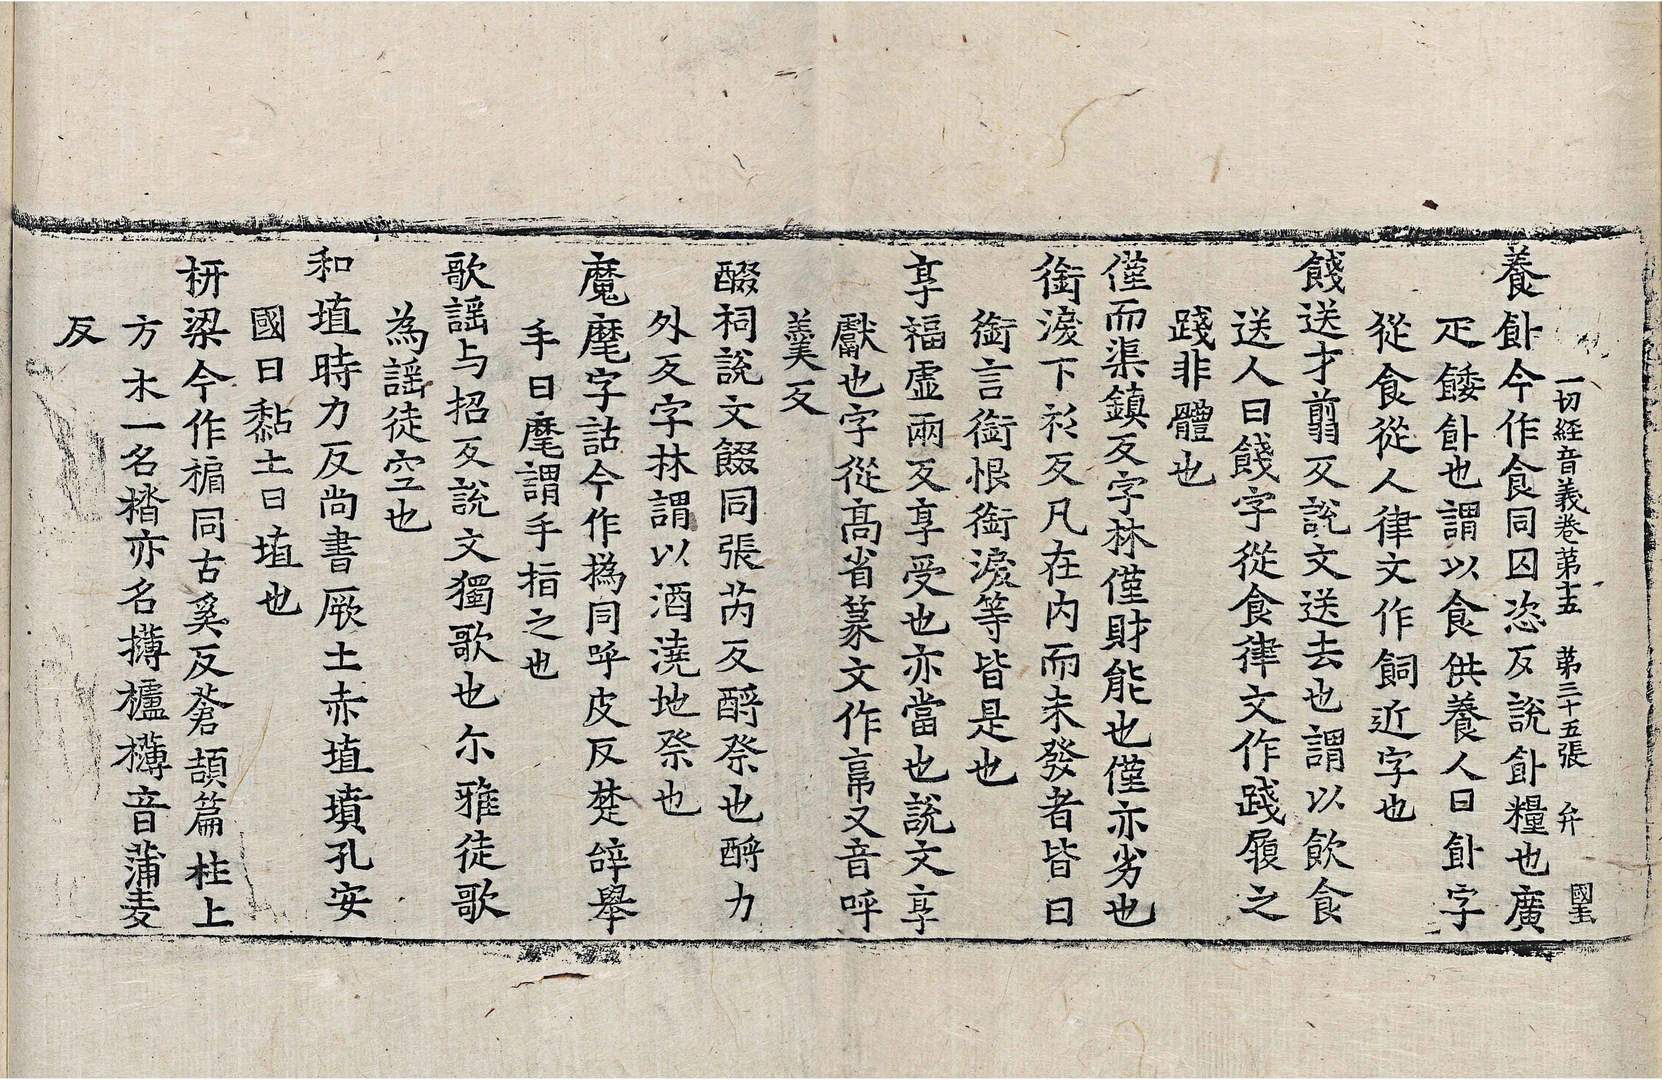 一切経音義卷第十五 第三十五張 弁 國玉
養飤今作食同囚恣反說飤糧也廣
疋餧飤也謂以食供養人曰飤字
從食從人律文作飼近字也
餞送才翦反說文送去也謂以飲食
送人曰餞字從食律文作踐履之
踐非體也
僅而渠鎮反字林僅財能也僅亦劣也
銜淚下衫反凡在內而未發者皆曰
銜言銜恨銜淚等皆是也
享福虛兩反享受也亦當也說文享
獻也字從高省篆文作亯又音呼
羹反
醊祠說文餟同張芮反酹祭也酹力
外反字林謂以酒澆地祭也
魔麾字詁今作撝同呼皮反楚辝舉
手曰麾謂手指之也
歌謡与招反說文獨歌也尓雅徒歌
為謡徒空也
和埴時力反尚書厥土赤埴墳孔安
國曰黏土曰埴也
枅梁今作㮷同古奚反蒼頡篇柱上
方木一名㭼亦名欂櫨欂音蒲麦
反